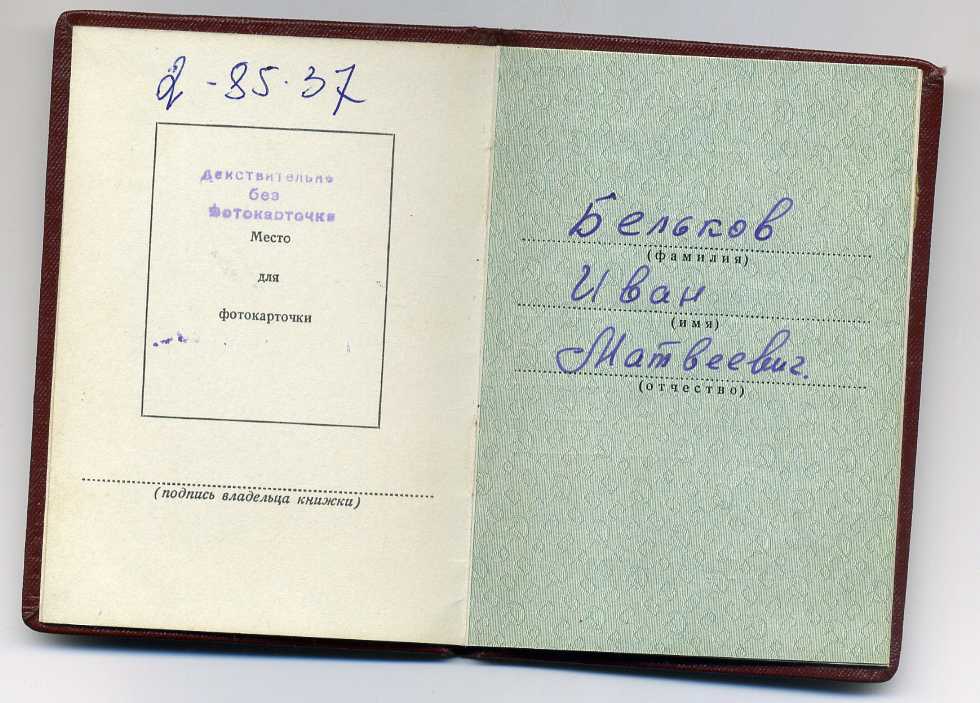 2-85-37
Действительно
без
фотокарточки
Место
для
фотокарточки
(подпись владельца книжки)
Бельков
(фамилия)
Иван
(имя)
Матвеевич.
(отчество)